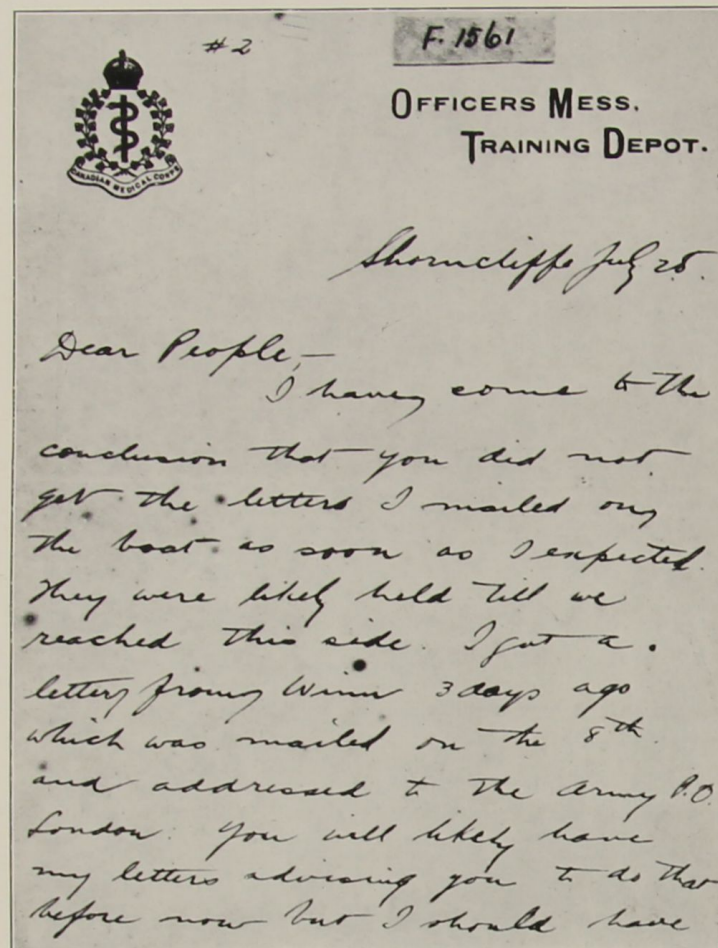 #2
F. 1561
CANADIAN MEDICAL CORPS
OFFICERS MESS.
TRAINING DEPOT.
Shorncliffe July 28.
Dear People,—
I have come to the
conclusion that you did not
get the letters I mailed on
the boat as soon as I expected.
They were likely held till we
reached this side. I got a
letter from Winn 3 days ago
which was mailed on the 8th
and addressed to the Army P.O.
London. You will likely have
my letters advising you to do that
before now but I should have